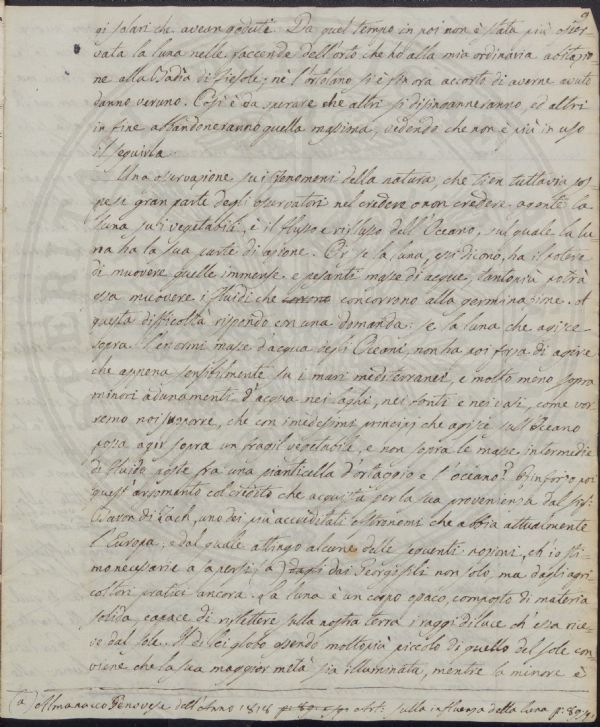 gi solari che avean goduti. Da quel tempo in poi non è stata più osser-
vata la luna nelle faccende dell'orto che ho alla mia ordinaria abitazio-
ne alla Badìa di Fiesole; nè l'ortolano si è fin ora accorto di averne avuto
danno veruno. Così è da sperare che altri si disinganneranno, ed altri
in fine abbandoneranno quella massima, vedendo che non è più in uso
il seguirla.
Una osservazione sui fenomeni della natura, che tien tuttavia sos-
pesi gran parte degli osservatori nel credere o non credere agente la
luna sui vegetabili, è il flusso e riflusso dell'Oceano, sul quale la lu-
na ha la sua parte di azione. Or se la luna, essi dicono, ha il potere
di muovere quelle immense e pesanti masse di acque, tantopiù potrà
essa muovere i fluidi che concorrono alla germinazione. A
questa difficoltà rispondo con una domanda: se la luna che agisce
sopra l'enormi masse d'acqua degli Oceani, non ha poi forza di agire
che appena sensibilmente su i mari mediterranei, e molto meno sopra
minori adunamenti d'acqua nei laghi, nei fonti e nei vasi, come vor-
remo noi supporre, che con i medesimi principj che agisce sull'Oceano
possa agir sopra un fragil vegetabile, e non sopra le masse intermedie
di fluido poste fra una pianticella d'ortaggio e l'oceano? Rinforzo poi
quest'argomento col credito che acquista per la sua provenienza dal Sig:
Baron di Zach, uno dei più accreditati astronomi che abbia attualmente
l'Europa, e dal quale attingo alcune delle seguenti nozioni, ch'io sti-
mo necessarie a sapersi (a) dai Georgofili non solo, ma dagli agri-
coltori pratici ancora. La luna è un corpo opaco, composto di materia
solida, capace di riflettere sulla nostra terra i raggi di luce ch'essa rice-
ve dal sole. Il di lei globo essendo moltopiù piccolo di quello del sole con-
viene che la sua maggior metà sia illuminata, mentre la minore è
(a) Almanacco Genovese dell'Anno 1818 Art: sulla influenza della luna p: 89